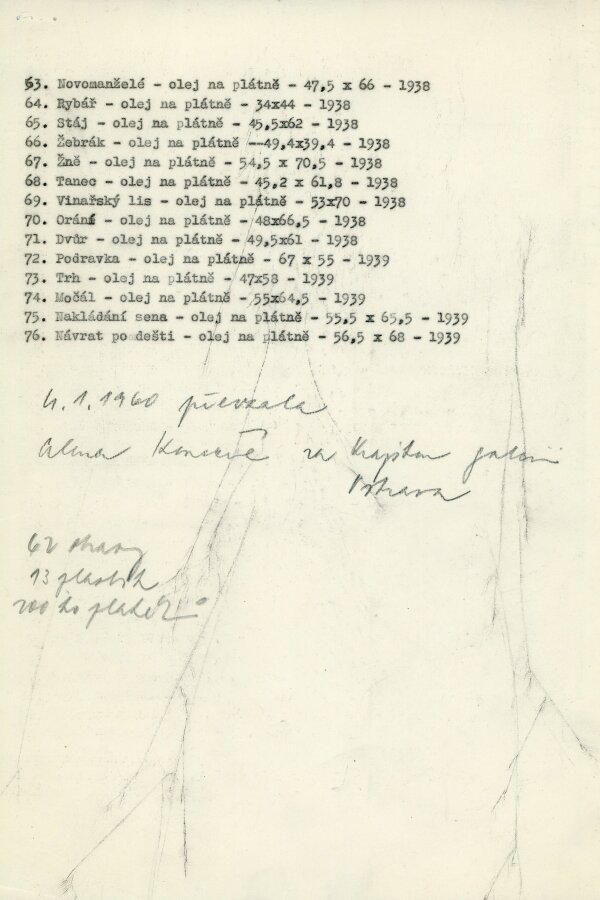 63. Novomanželé - olej na plátně - 47,5 x 66 - 1938
64. Rybář - olej na plátně - 34x44 - 1938
65. Stáj - olej na plátně - 45,5x62 - 1938
66. Žebrák - olej na plátně --49,4x39,4 - 1938
67. Žně - olej na plátně - 54,5 x 70,5 - 1938
68. Tanec - olej na plátně - 45,2 x 61,8 - 1938
69. Vinařský lis - olej na plátně - 53x70 - 1938
70. Orání - olej na plátně - 48x66,5 - 1938
71. Dvůr - olej na plátně - 49,5x61 - 1938
72. Podravka - olej na plátně - 67 x 55 - 1939
73. Trh - olej na plátně - 47x58 - 1939
74. Močál - olej na plátně - 55x64,5 - 1939
75. Nakládání sena - olej na plátně - 55,5 x 65,5 - 1939
76. Návrat po dešti - olej na plátně - 56,5 x 68 - 1939
4.1.1960 převzala
Alena za Krajskou galerii
Ostrava
62
13 plastik
200 ks